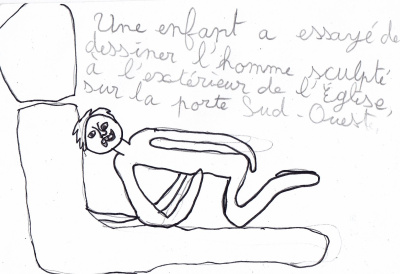 Une enfant a essayé de
dessiner l'homme sculpté
à l'extérieur de l'Église,
sur la porte Sud-Ouest.